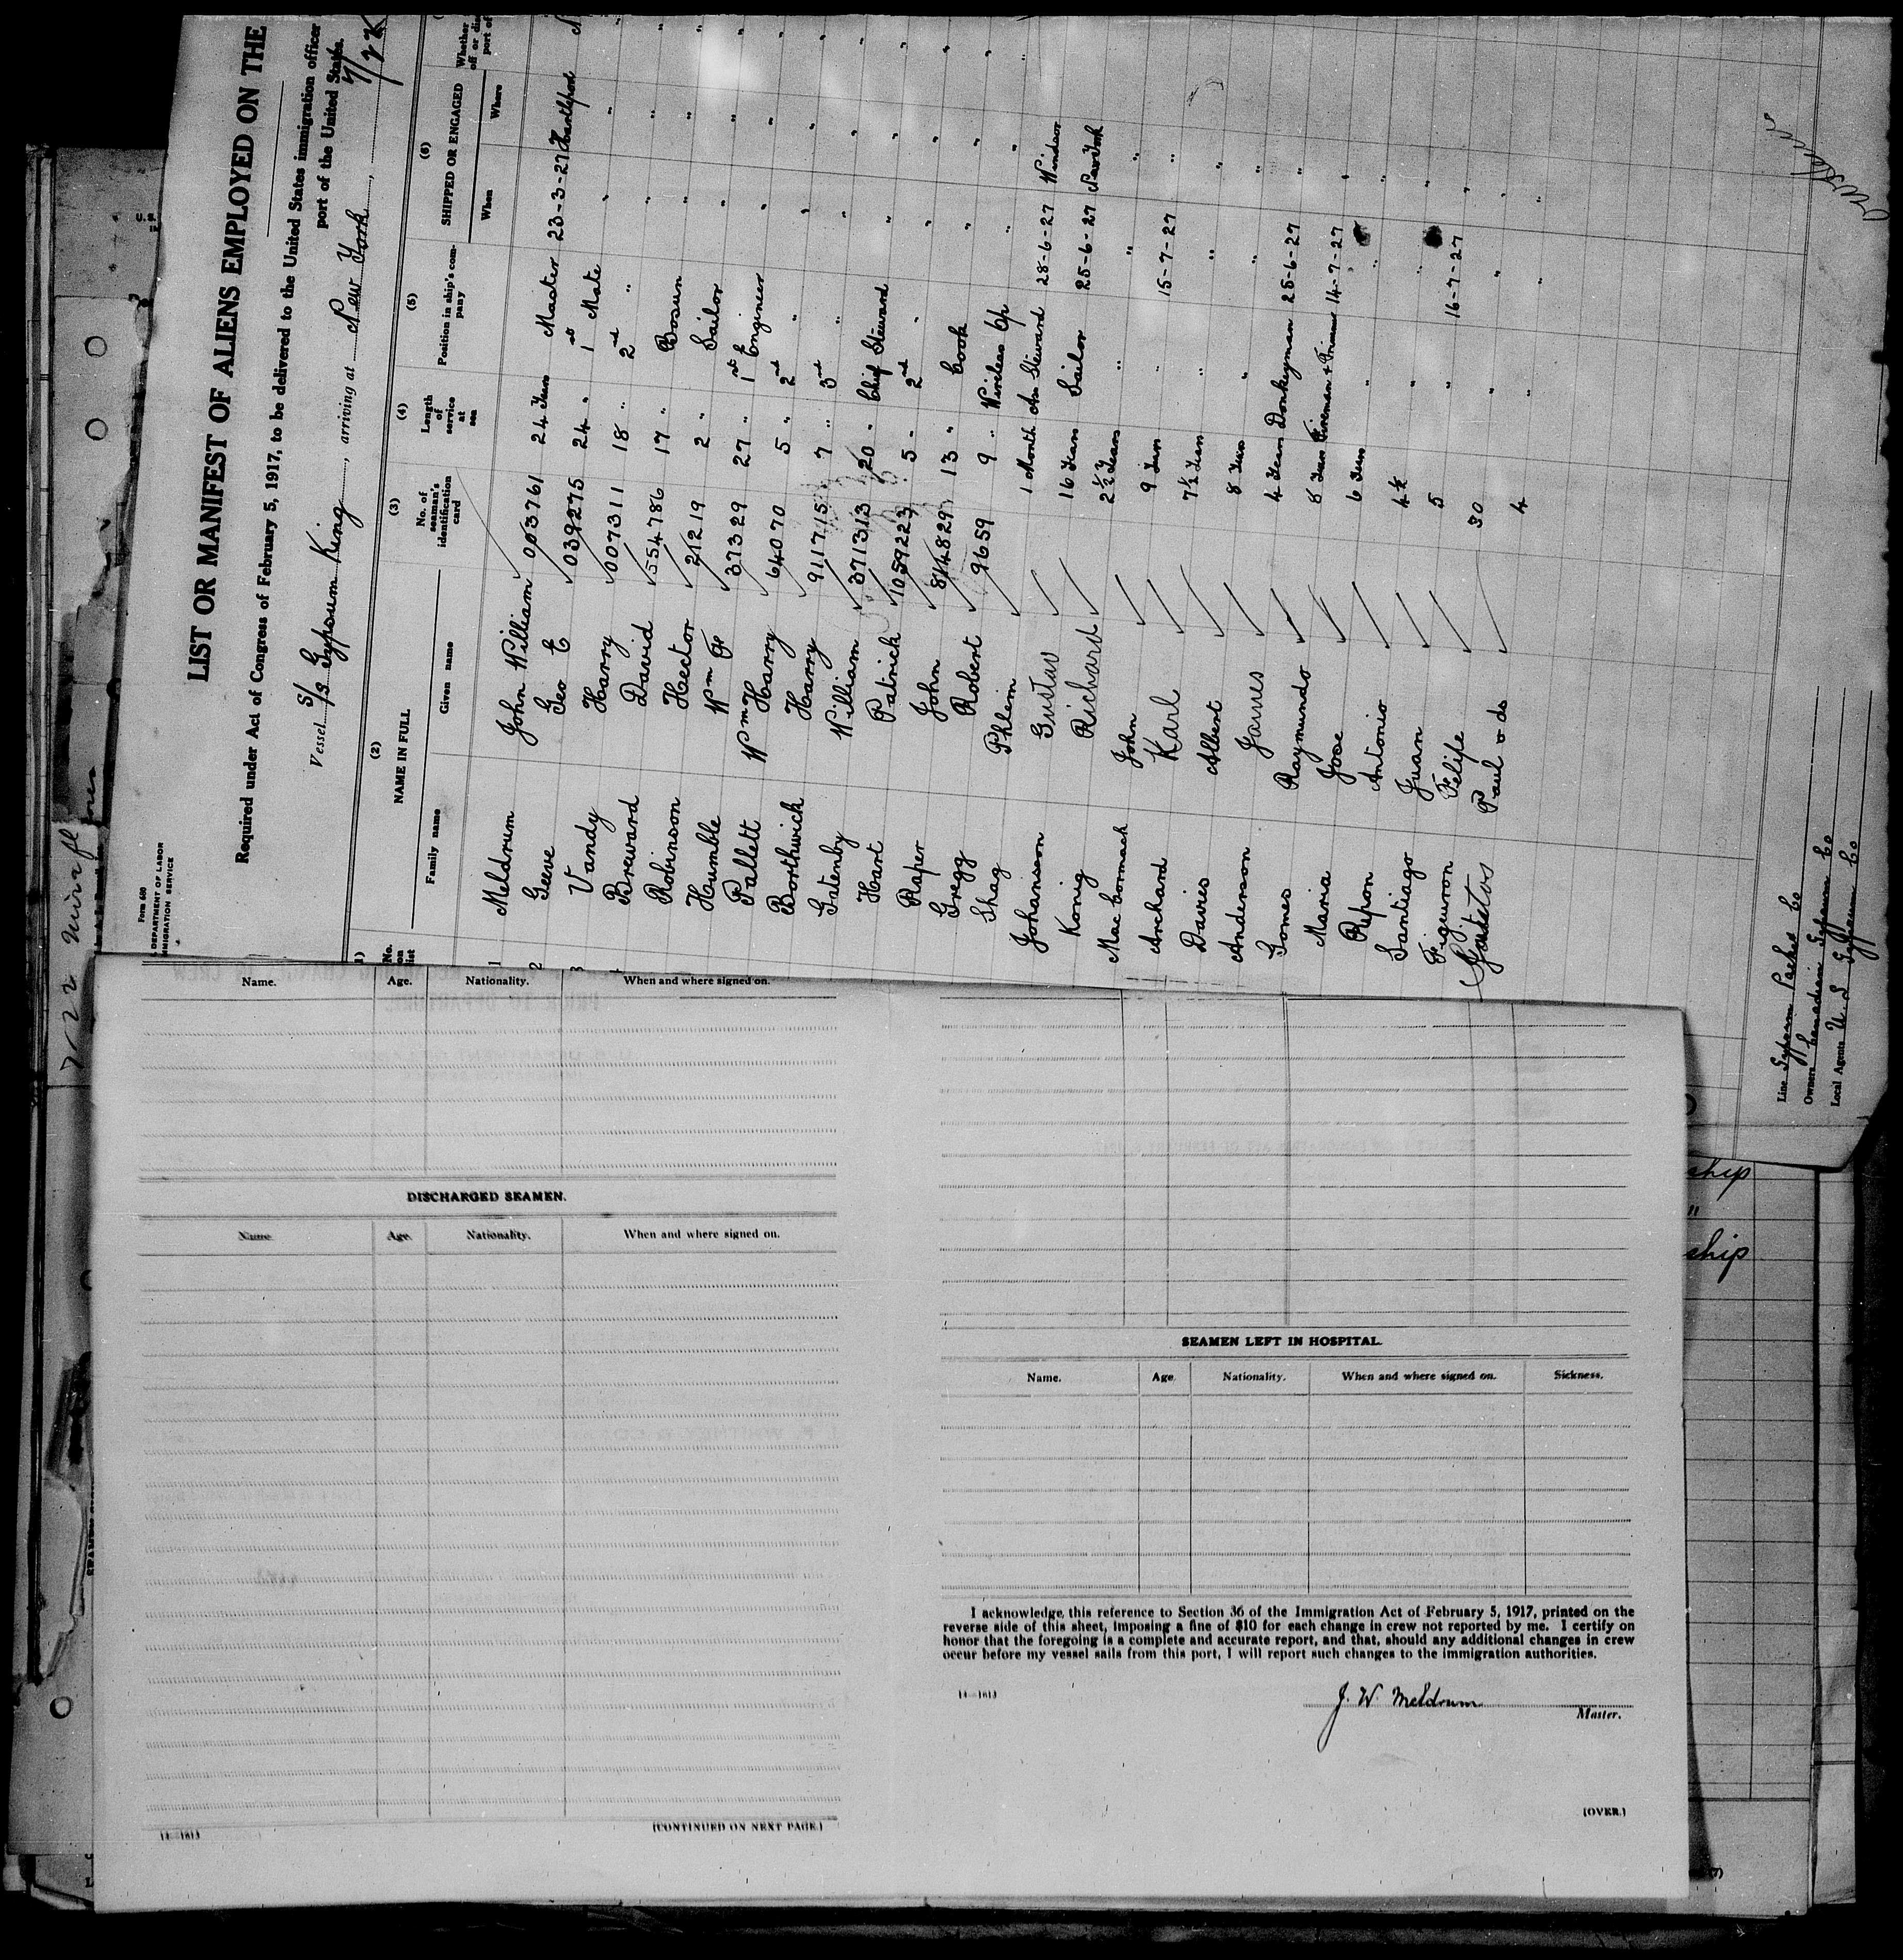 Form 680
DEPARTMENT OF LABOR
IMMIGRATION SERVICE
LIST OR MANIFEST OF ALIENS EMPLOYED ON THE
Required under Act of Congress of February 5, 1917, to be delivered to the United States immigration officer
port of the United States.
Vessel S/S Gypsum King, arriving at New York,
(2) (3) (4) (5) (6)
No. on list
NAME IN FULL
Family name Given name
No. of seaman's identification card
Length of service at sea
Position in ship's company
SHIPPED OR ENGAGED
When Where
1 Meldrum John William 003761 24 Years Master 23-3-27 Hartlepool
2 Geeve Geo E 039275 24 " 1st Mate " "
3 Vandy Harry 007311 18 " 2nd " " "
Breward David 554786 17 " Bosun " "
Robinson Hector 21219 2 " Sailor " "
Humble Wm F 37329 27 " 1st Engineer " "
Pallett Wm Harry 64070 5 " 2nd " " "
Borthwick Harry 911715 7 " 3rd " " "
Gatenby William 371313 20 " Chief Steward " "
Hart Patrick 1059223 5 " 2nd " " "
Raper John 814829 13 " Cook " "
Gregg Robert 9659 9 " Wireless Op " "
Shag Phleim 1 Month Ass Steward 28-6-27 Windsor
Johansson Gustav 16 Years Sailor 25-6-27 New York
Konig Richard 2½ Years " " "
MacCormack John 9 Years " 15-7-27 "
Archard Karl 7½ Years " " "
Davies Albert 8 Years " " "
Anderson James 4 Years Donkeyman 25-6-27 "
Gomes Raymundo 8 Years Fireman & Trimmer 14-7-27 "
Maria Jose 6 Years " " "
Repon Antonio 4½ " " "
Santiago Juan 5 " 16-7-27 "
Figueron Felipe 30 " " "
Santos Paul o do 4 " " "
Line Gypsum Packet Co
Owners Canadian Gypsum Co
Local Agents U.S. Gypsum Co
Name. Age. Nationality. When and where signed on.
DISCHARGED SEAMEN.
Name. Age. Nationality. When and where signed on.
14—1813
(CONTINUED ON NEXT PAGE.)
SEAMEN LEFT IN HOSPITAL.
Name. Age. Nationality. When and where signed on. Sickness.
I acknowledge this reference to Section 36 of the Immigration Act of February 5, 1917, printed on the
reverse side of this sheet, imposing a fine of $10 for each change in crew not reported by me. I certify on
honor that the foregoing is a complete and accurate report, and that, should any additional changes in crew
occur before my vessel sails from this port, I will report such changes to the immigration authorities.
14—1813
J. W. Meldrum
Master.
(OVER.)
ship
"
ship